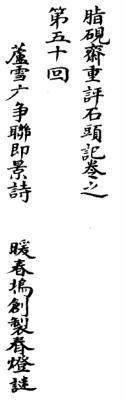 脂硯齋重評石頭記卷之
第五十回
蘆雪广争聯即景詩 暖春塢創製春燈謎